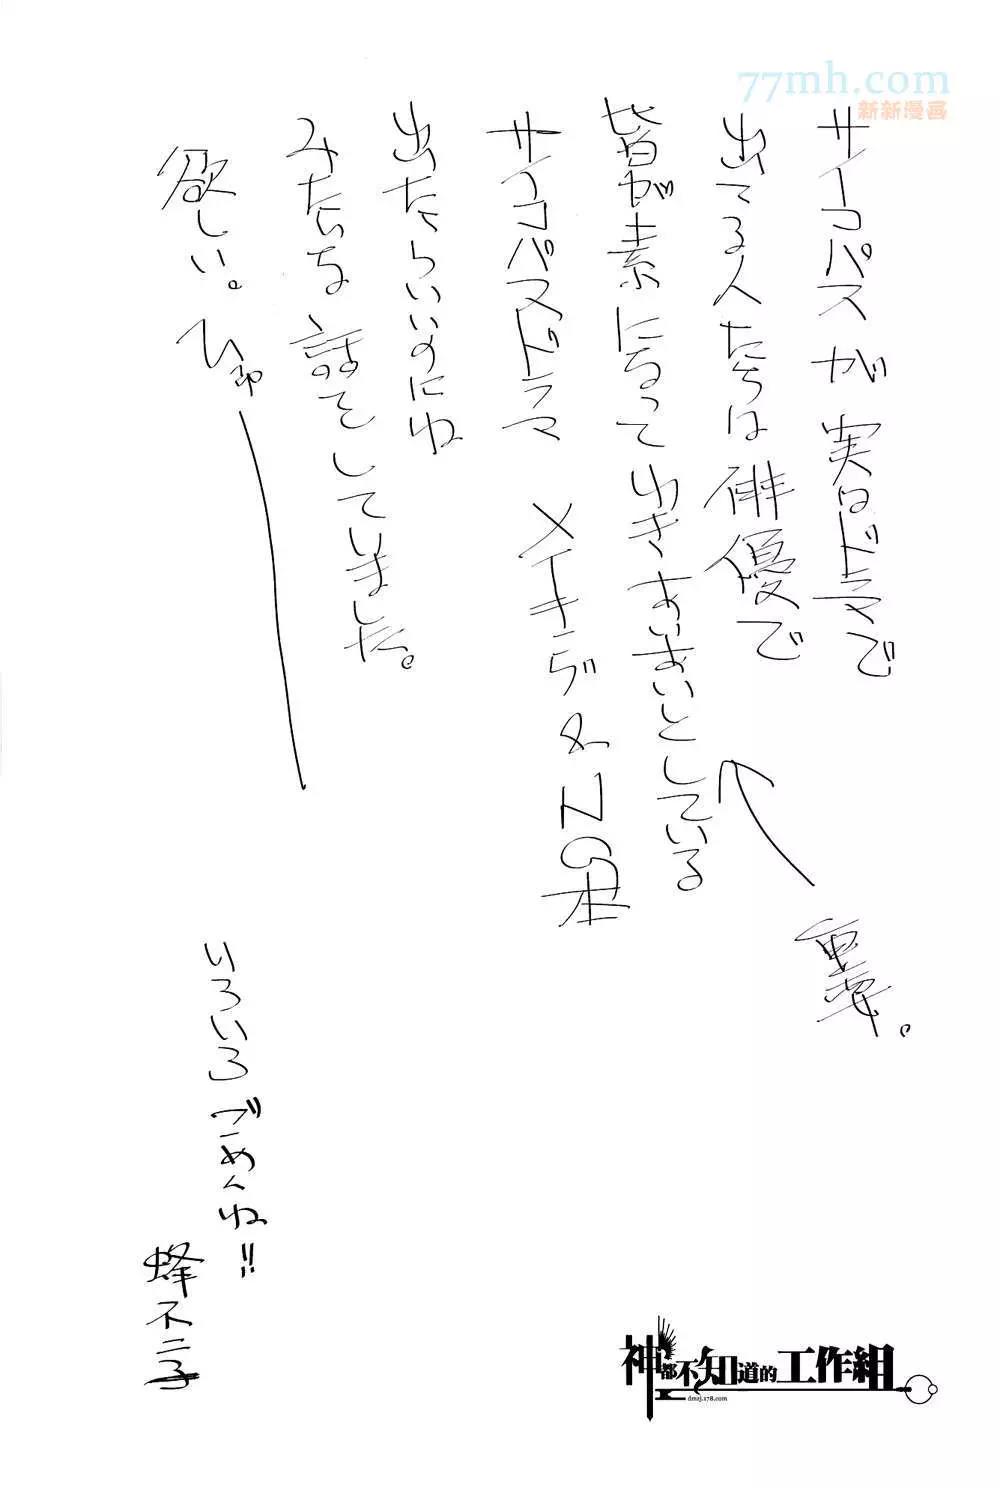 77mh.com
新新漫画
サイコパスが実はドラマで
出てる人たちは俳優で
皆が素になって
わきあいあいとしている
サイコパスドラマ
メイキング&NG本
出たらいいのにね
みたいな話をしていました。
欲しい。ひゅー
重要。
いろいろごめんね!!
蜂不二子
神都不知道的工作組
dmzj.178.com